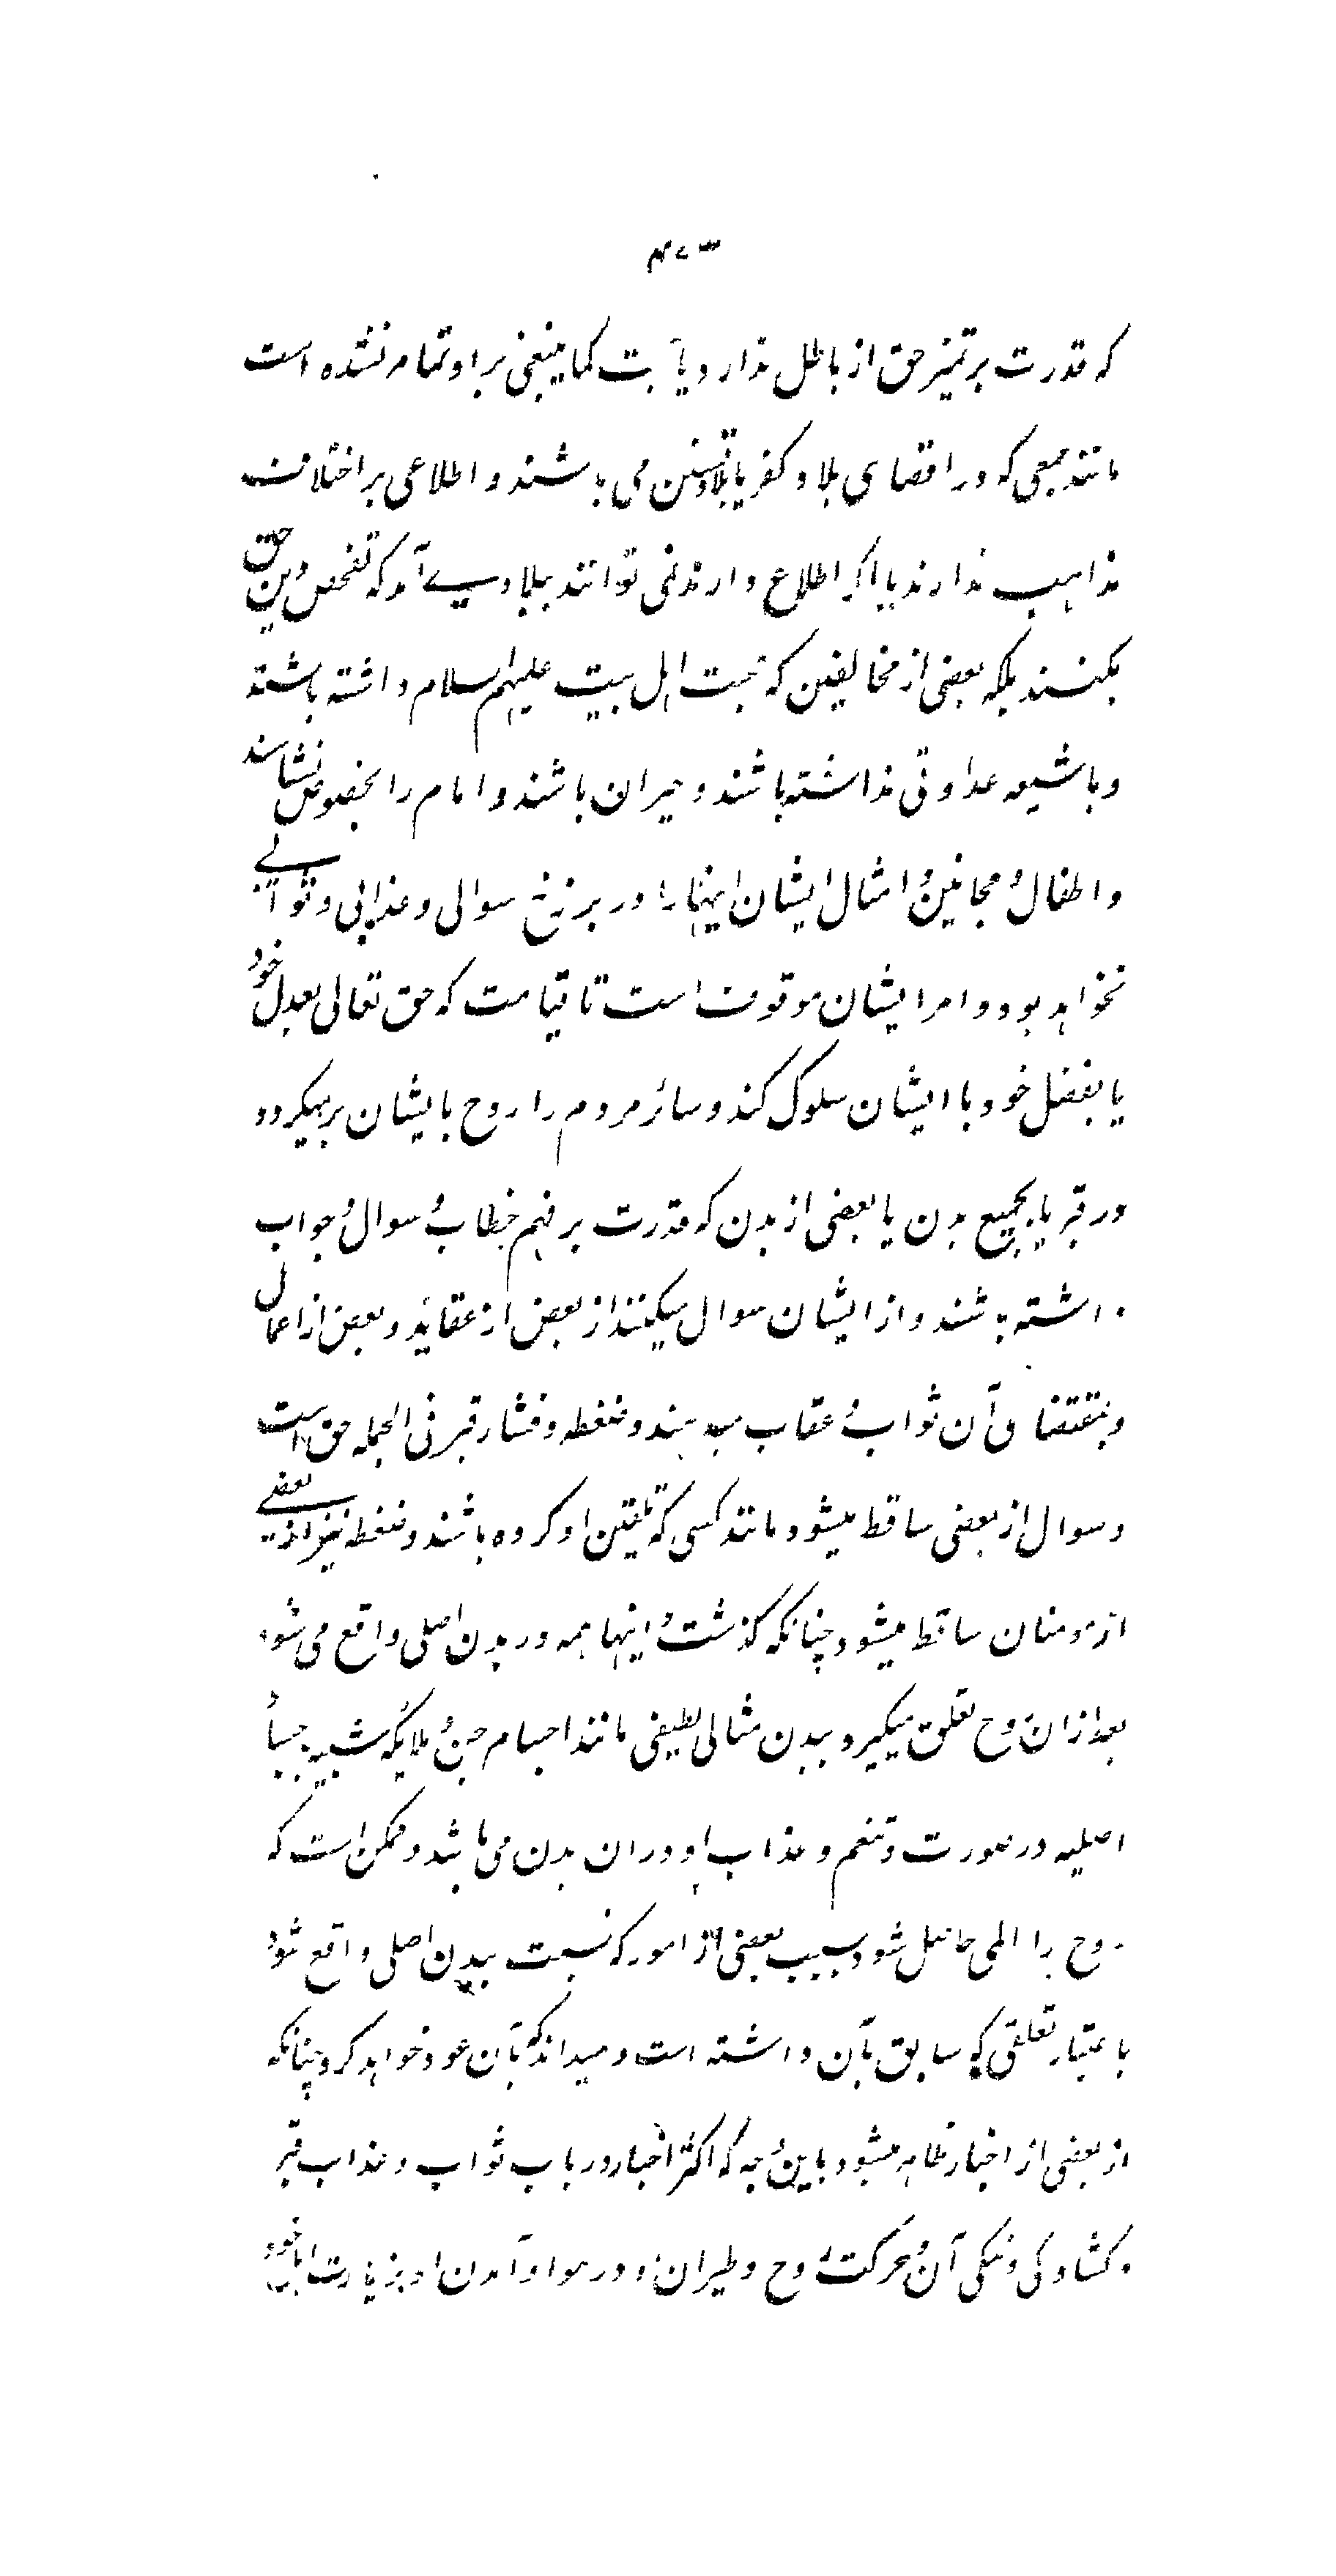 که قدرت بر تمیز حق از باطل ندارد یا حجت کما ینبغی بر او تمام نشده است
مانند جمعی که در اقصای بلاد کفر یا بلاد تسنن می باشند و اطلاعی بر اختلاف
مذاهب ندارند یا اگر اطلاع دارند نمی توانند ببلادی آمد که تفحص دین حق
بکنند بلکه بعضی از مخالفین که محبت اهل بیت علیهم السلام داشته باشند
و با شیعه عداوتی نداشته باشند و حیران باشند و امام را بخصوص نشناسند
و اطفال و مجانین و امثال ایشان اینها را در برزخ سوالی و عذابی و ثوابی
نخواهد بود و امر ایشان موقوف است تا قیامت که حق تعالی بعدل خود
یا بفضل خود با ایشان سلوک کند و سائر مردم را روح بایشان برمیگردد
در قبر یا بجمیع بدن یا بعضی از بدن که قدرت بر فهم خطاب و سوال و جواب
داشته باشند و از ایشان سوال میکنند از بعض از عقاید و بعض از اعمال
و بمقتضای آن ثواب و عقاب میدهند و ضغطه و فشار قبر فی الجمله حق است
و سوال از بعضی ساقط میشود مانند کسی که تلقین او کرده باشند و ضغطه نیز از بعضی
از مومنان ساقط میشود چنانکه گذشت و اینها همه در بدن اصلی واقع می شود
بعد ازان روح تعلق میگیرد ببدن مثالی لطیفی مانند اجسام جن و ملایکه شبیه بجسد
اصلیه در صورت و تنعم و عذاب او دران بدن می باشد و ممکن است که
روح را المی حاصل شود بسبب بعضی از امور که نسبت ببدن اصلی واقع شود
باعتبار تعلقی که سابق بآن داشته است و میداند که بآن عود خواهد کرد چنانکه
از بعضی از اخبار ظاهر میشود باین وجه که اکثر اخبار در باب ثواب و عذاب قبر
و کشادگی و تنگی آن و حرکت روح و طیران او در هوا و آمدن او بزیارت اهل خود